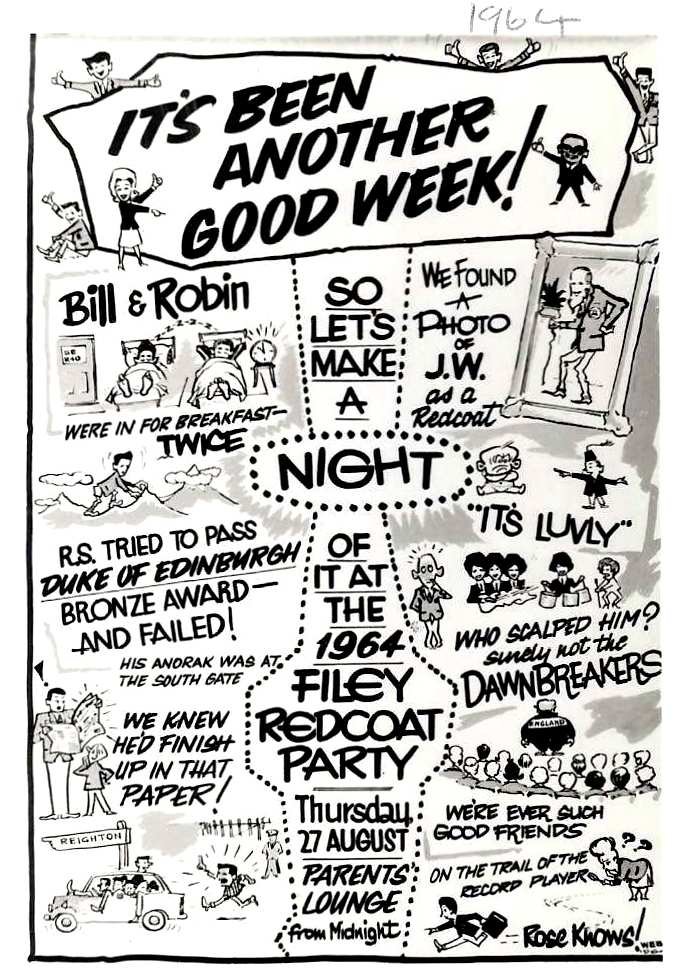 1964
IT'S BEEN
ANOTHER
GOOD WEEK!
Bill & Robin
WERE IN FOR BREAKFAST—
TWICE
R.S. TRIED TO PASS
DUKE OF EDINBURGH
BRONZE AWARD—
AND FAILED!
HIS ANORAK WAS AT
THE SOUTH GATE
WE KNEW
HE'D FINISH
UP IN THAT
PAPER!
REIGHTON
SO
LET'S
MAKE
A
NIGHT
OF
IT AT
THE
1964
FILEY
REDCOAT
PARTY
Thursday
27 AUGUST
PARENTS'
LOUNGE
from Midnight
WE FOUND
A
PHOTO
OF
J.W.
as a
Redcoat
"IT'S LUVLY"
WHO SCALPED HIM?
surely not the
DAWNBREAKERS
ENGLAND
WE'RE EVER SUCH
GOOD FRIENDS
ON THE TRAIL OF THE
RECORD PLAYER
Rose Knows!
WEB